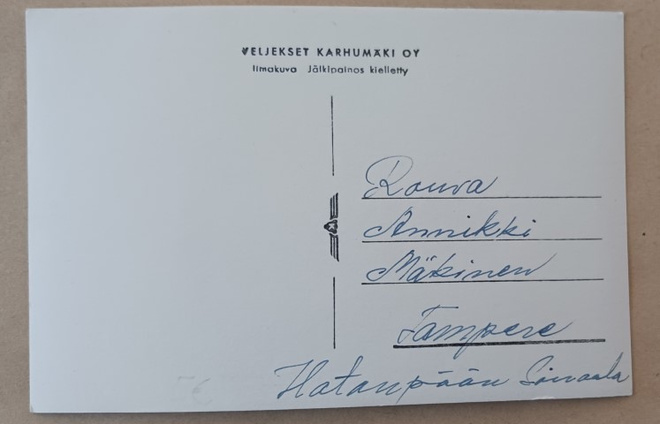 VELJEKSET KARHUMÄKI OY
Ilmakuva Jälkipainos kielletty
Rouva
Annikki
Mäkinen
Tampere
Hatanpään Sairaala